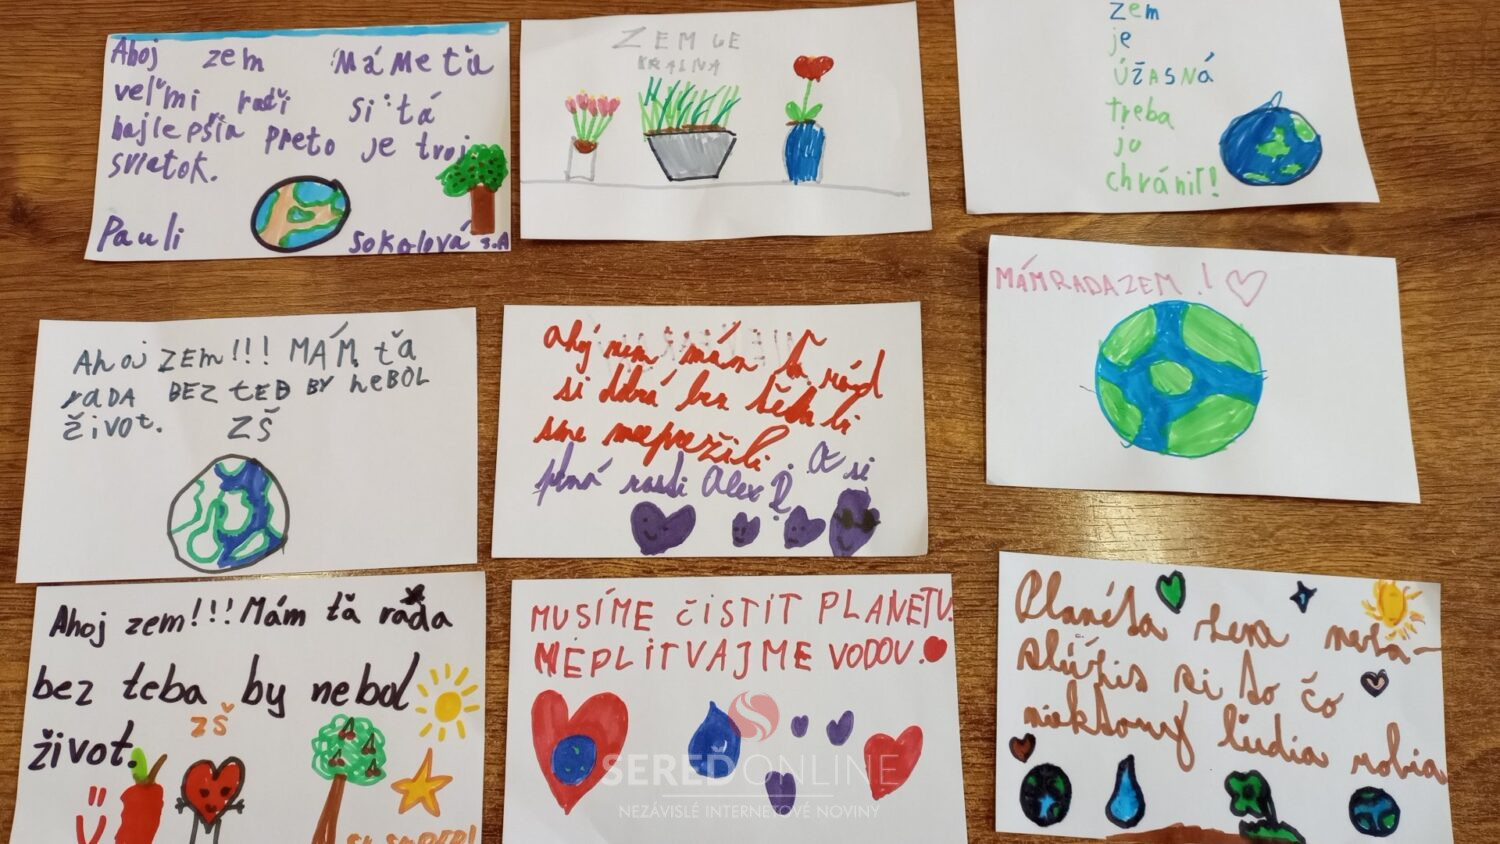 Ahoj zem Máme ťa
veľmi radi si tá
najlepšia preto je tvoj
sviatok.
Pauli Sokolová 3.A
ZEM JE
KRÁSNA
Zem
je
ÚŽASNá
treba
ju
chrániť!
Ahoj ZEM!!! MÁM ťa
raDA BEZ teB BY neBOL
život. ZŠ
si dobrá bez teba bi
sme neprežili. A si
plná rastl Alex
MÁM RADA ZEM!
Ahoj zem!!! Mám ťa rada
bez teba by nebol
život. ZŠ
SI SUPER!
MUSÍME ČISTIŤ PLANÉTU.
NEPLITVAJME VODOV.
Planéta zem neza-
slúžiš si to čo
niektorý ľudia robia
SEREĎONLINE
NEZÁVISLÉ INTERNETOVÉ NOVINY